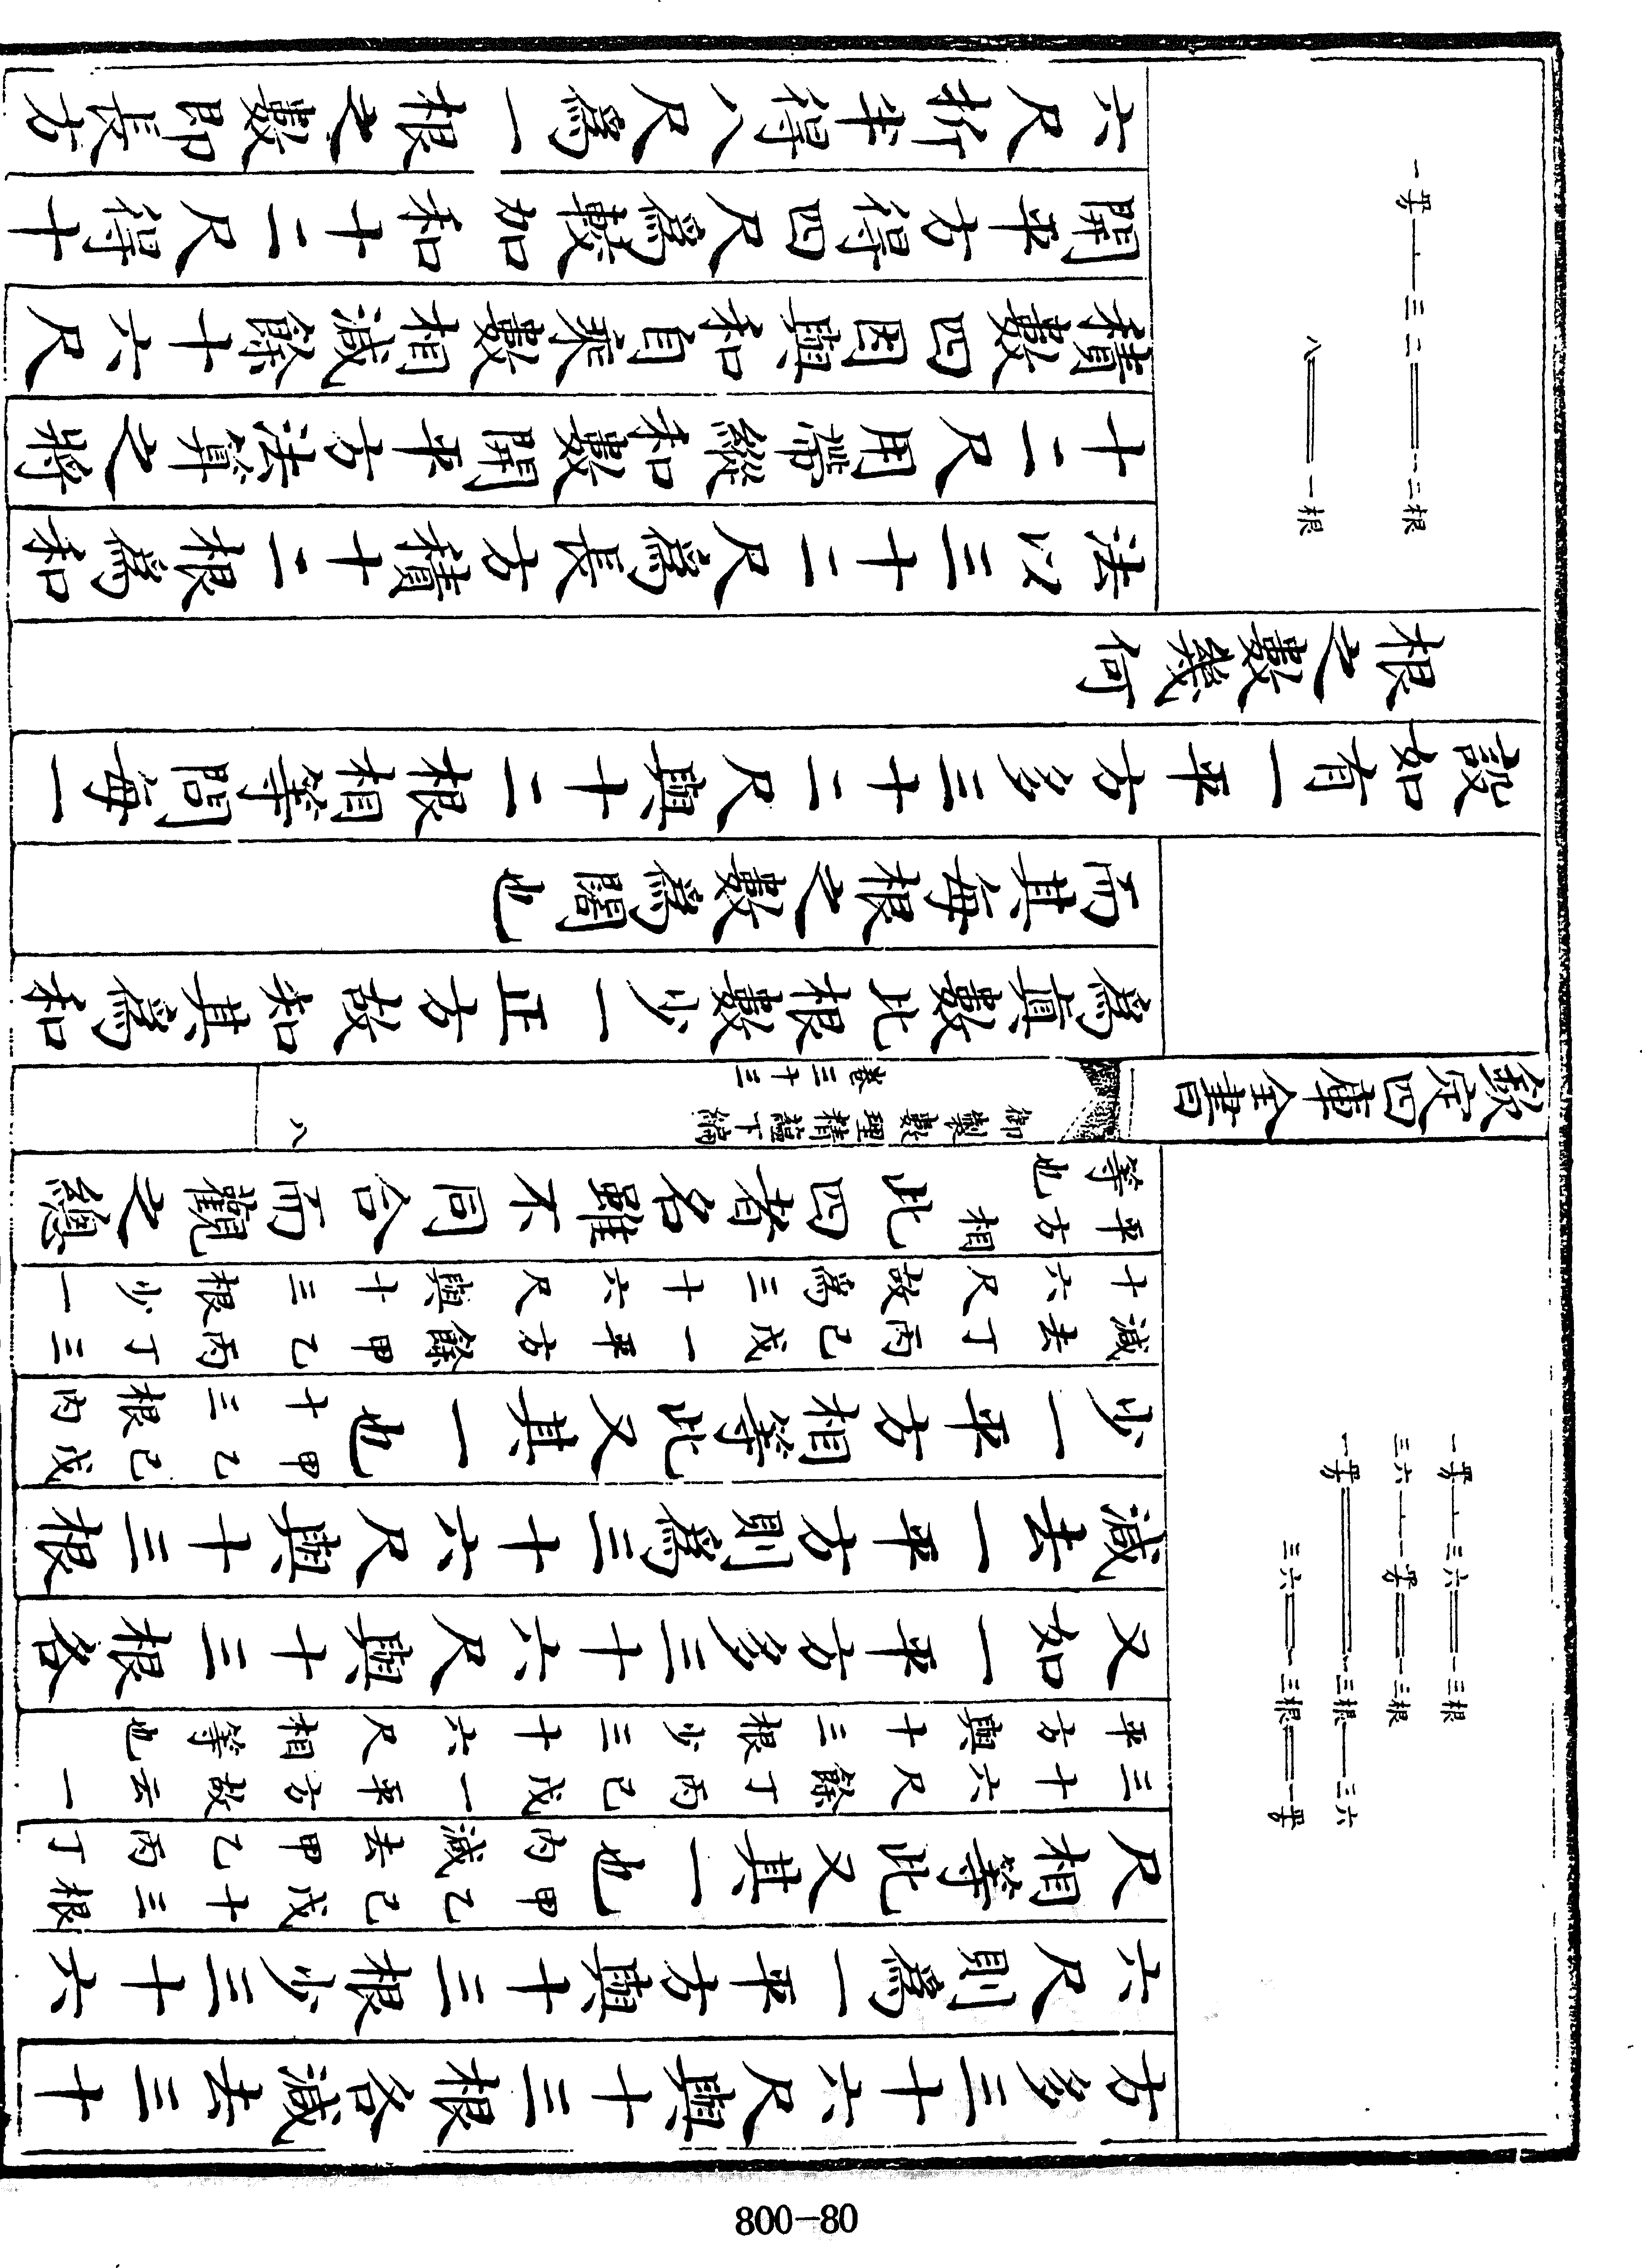 一平方⊥三六＝一三根
三六⊥一平方＝一三根
一平方＝一三根—三六
三六＝一三根—一平方
方多三十六尺與十三根各減去三十
六尺則為一平方與十三根少三十六
尺相等此又其一也甲乙己戊十三根
內減去甲乙丙丁
三十六尺餘丁丙己戊一平方故云一
平方與十三根少三十六尺相等也
又如一平方多三十六尺與十三根各
減去一平方則為三十六尺與十三根
少一平方相等此又其一也甲乙己戊
十三根內
減去丁丙己戊一平方餘甲乙丙丁三
十六尺故為三十六尺與十三根少一
平方相
等也
此四者名雖不同合而觀之總
欽定四庫全書
御製數理精蘊下編
卷三十三
八
為真數比根數少一正方故知其為和
而其每根之數為闊也
設如有一平方多三十二尺與十二根相等問每一
根之數幾何
一平方⊥三二＝一二根
八＝一根
法以三十二尺為長方積十二根為和
十二尺用帶縱和數開平方法算之將
積數四因與和自乘數相減餘十六尺
開平方得四尺為較加和十二尺得十
六尺折半得八尺為一根之數即長方
800-80